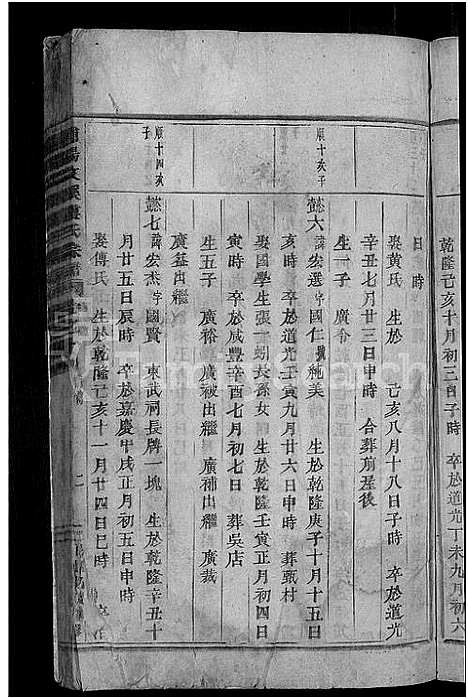 乾隆己亥十月初三日子時 卒於道光丁未九月初六
日 時
娶黄氏 生於 己亥八月十八日子時 卒於道光
辛丑七月廿三日申時 合葬前屋後
生一子 廣
順十亥子
懿六 諱宏選字國仁號純美 生於乾隆庚子十月十五日
亥時 卒於道光壬寅九月廿六日申時 葬甄村
娶國學生張一 長孫女 生於乾隆壬寅正月初四日
寅時 卒於咸豐辛酉七月初七日 葬吳店
生五子 廣裕 廣被出繼 廣補出繼 廣裁
廣 出繼
順十四亥子
懿七 諱宏杰字國賢 東武祠長牌一塊 生於乾隆辛丑十
月廿五日辰時 卒於嘉慶甲戌正月初五日申時
娶傅氏 生於乾隆己亥十一月廿四日巳時
氏宗譜